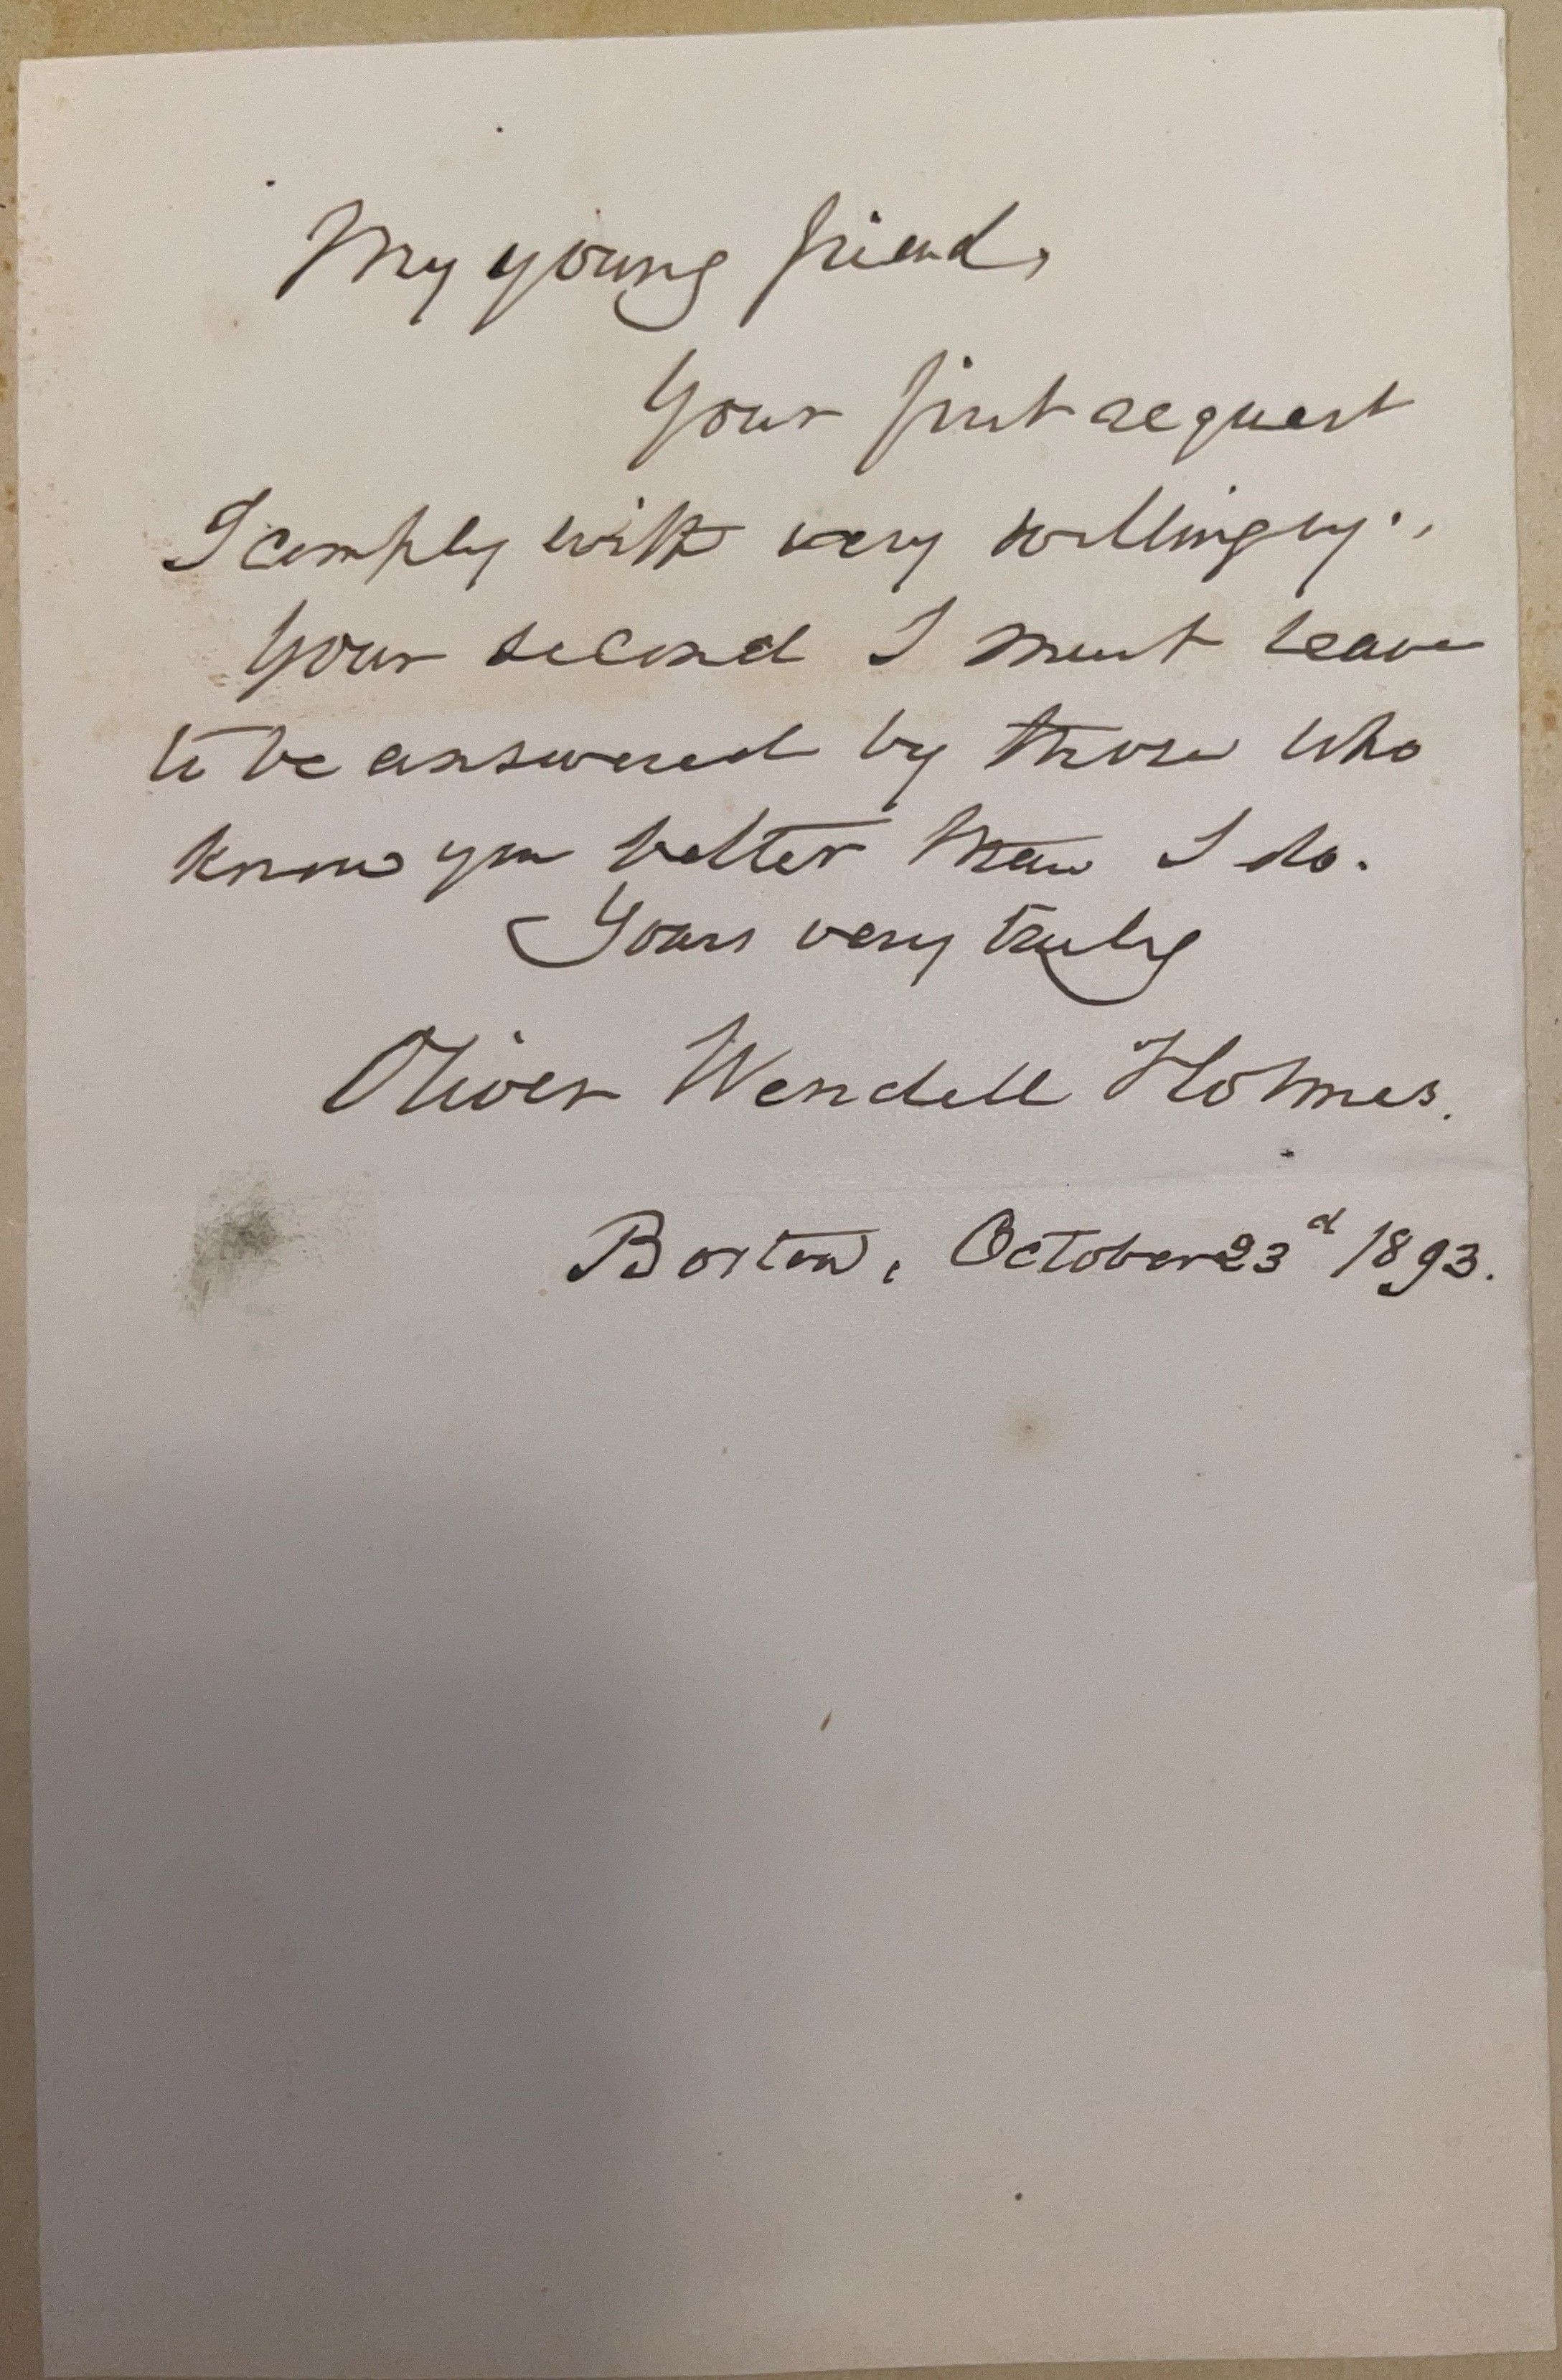 My young friend,
Your first request
I comply with very willingly;
Your second I must leave
to be answered by those who
know you better than I do.
Yours very truly
Oliver Wendell Holmes.
Boston, October 23d 1893.